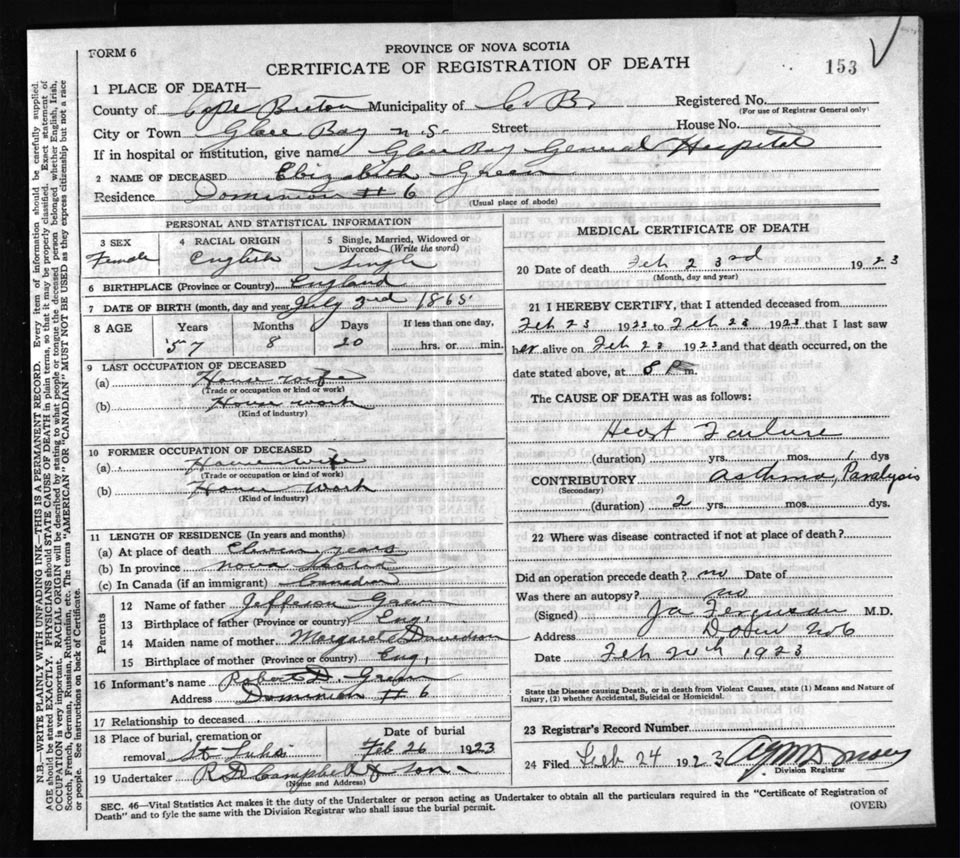 FORM 6
PROVINCE OF NOVA SCOTIA
CERTIFICATE OF REGISTRATION OF DEATH
153
1 PLACE OF DEATH—
County of Cape Breton Municipality of C. B. Registered No.
(For use of Registrar General only)
City or Town Glace Bay N.S. Street House No.
If in hospital or institution, give name Glace Bay General Hospital
2 NAME OF DECEASED Elizabeth Green
Residence Dominion # 6
(Usual place of abode)
PERSONAL AND STATISTICAL INFORMATION
3 SEX Female
4 RACIAL ORIGIN English
5 Single, Married, Widowed or Divorced (Write the word) Single
6 BIRTHPLACE (Province or Country) England
7 DATE OF BIRTH (month, day and year) July 3rd 1865
8 AGE Years Months Days If less than one day,
57 8 20 hrs. or min.
9 LAST OCCUPATION OF DECEASED
(a) House wife
(Trade or occupation or kind or work)
(b) House work
(Kind of industry)
10 FORMER OCCUPATION OF DECEASED
(a) House wife
(Trade or occupation or kind of work)
(b) House work
(Kind of industry)
11 LENGTH OF RESIDENCE (In years and months)
(a) At place of death Eleven years
(b) In province Nova Scotia
(c) In Canada (if an immigrant) Canadian
Parents
12 Name of father Jefferson Green
13 Birthplace of father (Province or country) Eng.
14 Maiden name of mother Margaret Davidson
15 Birthplace of mother (Province or country) Eng.
16 Informant's name Robert D. Green
Address Dominion # 6
17 Relationship to deceased
18 Place of burial, cremation or removal St Lukes
Date of burial Feb 26 1923
19 Undertaker R D Campbell & Son
(Name and Address)
MEDICAL CERTIFICATE OF DEATH
20 Date of death Feb 23rd 1923
(Month, day and year)
21 I HEREBY CERTIFY, that I attended deceased from
Feb 23 1923 to Feb 23 1923 that I last saw
her alive on Feb 23 1923 and that death occurred, on the
date stated above, at 5 P.m.
The CAUSE OF DEATH was as follows:
Heart Failure
(duration) yrs. mos. 1 dys
CONTRIBUTORY Asthma, Paralysis
(Secondary)
(duration) 2 yrs. mos. dys.
22 Where was disease contracted if not at place of death?
Did an operation precede death? no Date of
Was there an autopsy? no
(Signed) Ja Ferguson M.D.
Address Dom No 6
Date Feb 24th 1923
State the Disease causing Death, or in death from Violent Causes, state (1) Means and Nature of
Injury, (2) whether Accidental, Suicidal or Homicidal.
23 Registrar's Record Number
24 Filed Feb 24 1923
Division Registrar
SEC. 46—Vital Statistics Act makes it the duty of the Undertaker or person acting as Undertaker to obtain all the particulars required in the "Certificate of Registration of
Death" and to fyle the same with the Division Registrar who shall issue the burial permit.
(OVER)
N.B.—WRITE PLAINLY WITH UNFADING INK—THIS IS A PERMANENT RECORD. Every item of information should be carefully supplied.
AGE should be stated EXACTLY. PHYSICIANS should STATE CAUSE OF DEATH in plain terms, so that it may be properly classified. Exact statement of
OCCUPATION is very important. RACIAL ORIGIN will be described by stating to what people or tongue the deceased person belonged whether English, Irish,
Scotch, French, German, Russian, Ruthenian, etc. The terms "AMERICAN" OR "CANADIAN" MUST NOT BE USED as they express citizenship but not a race
or people. See instructions on back of Certificate.